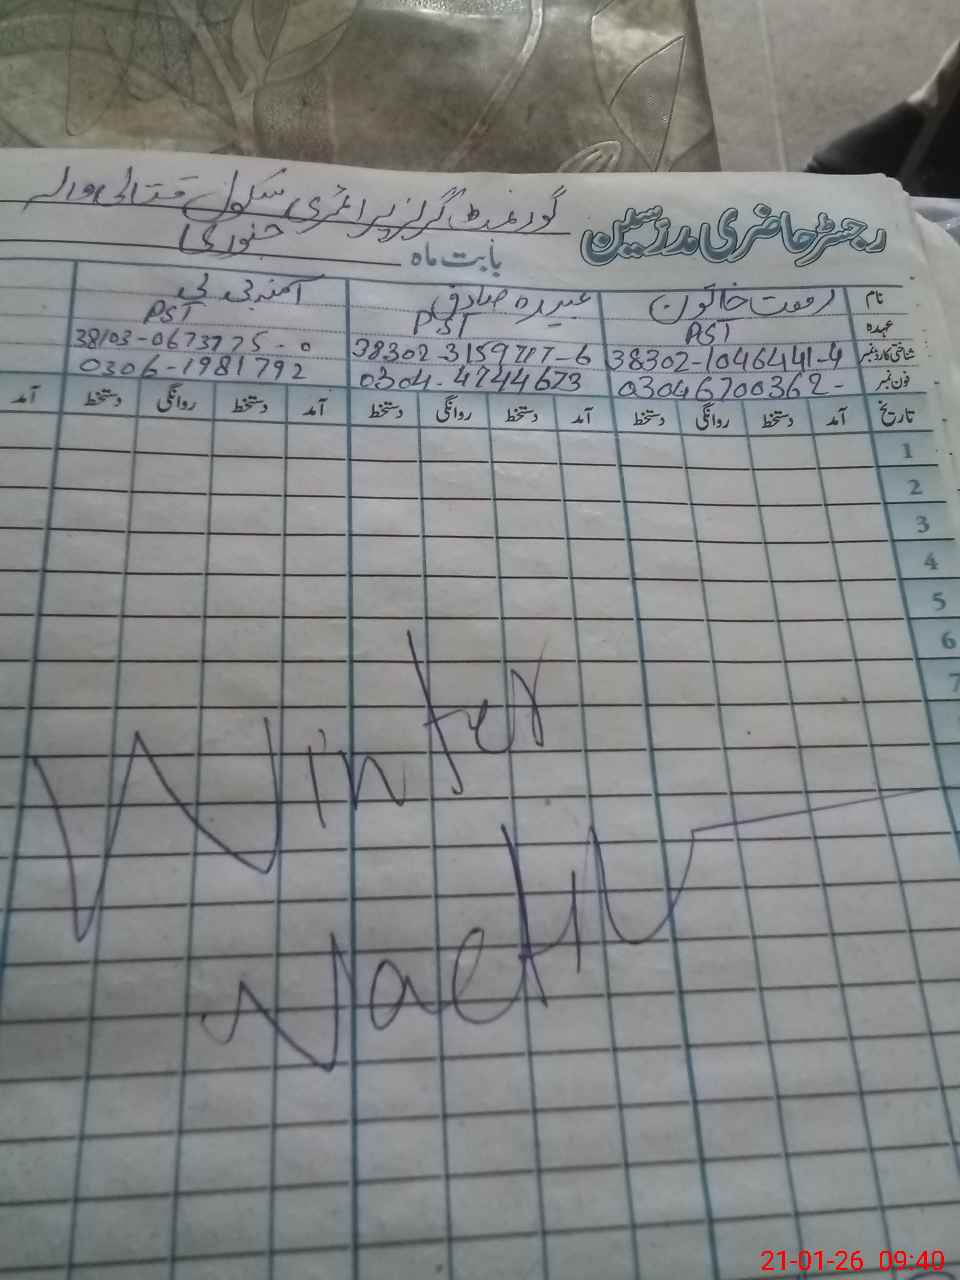 رجسٹر حاضری مدرسین
گورنمنٹ گرلز پرائمری سکول
بابت ماہ جنوری
نام رفعت خاتون عبیرہ صادق آمنہ بی بی
عہدہ PST PST PST
شناختی کارڈ نمبر 38302-1046441-4 38302-3159717-6 38103-0673775-0
فون نمبر 03046700362- 0304-4744673 0306-1981792
تاریخ آمد دستخط روانگی دستخط آمد روانگی دستخط آمد دستخط روانگی دستخط آمد
1
2
3
4
5
6
7
Winter
21-01-26 09:40